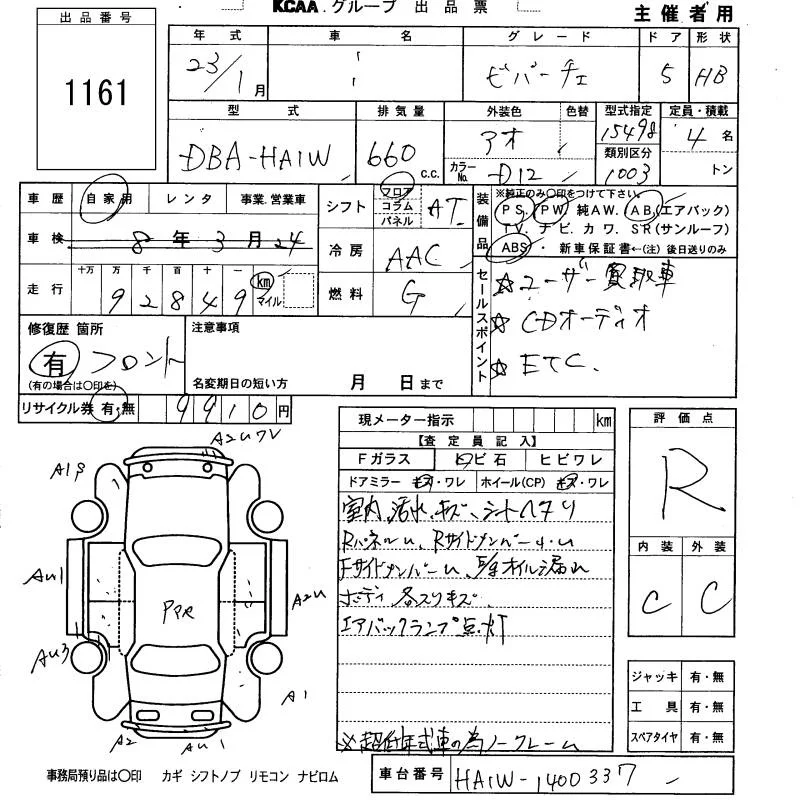 KCAA.グループ 出品票
主催者用
出品番号
1161
年式 車名 グレード ドア 形状
23/1月 ビバーチェ 5 HB
型式 排気量 外装色 色替 型式指定 定員・積載
DBA-HA1W 660 c.c. アオ 15498 4名
カラーNo. D12 類別区分 1003 トン
車歴 自家用 レンタ 事業.営業車
シフト フロア コラム パネル AT
装備品
※純正のみ〇印をつけて下さい。
PS. PW. 純AW. AB.(エアバック)
TV. ナビ. カワ. SR(サンルーフ)
ABS ・新車保証書←(注)後日送りのみ
車検 8年3月24
冷房 AAC
走行 十万 万 千 百 十 一
92849 km マイル
燃料 G
セールスポイント
☆ユーザー買取車
☆CDオーディオ
☆ETC.
修復歴 箇所
有 フロント
(有の場合は〇印を)
注意事項
名変期日の短い方 月 日まで
リサイクル券 有・無 9910円
現メーター指示 km
【査定員記入】
Fガラス トビ石 ヒビワレ
ドアミラー キズ・ワレ ホイール(CP) キズ・ワレ
室内汚れ、キズ、シートヘタリ
Rパネルu、Rサイドメンバーu
Fサイドメンバーu、オイル漏れ
ボディ各スリキズ
エアバックランプ点灯
※超低年式車の為ノークレーム
評価点
R
内装 外装
C C
ジャッキ 有・無
工具 有・無
スペアタイヤ 有・無
A2uワレ
A1P
Au1
A2u
PPR
Au3
A1
A2
Au1
事務局預り品は〇印 カギ シフトノブ リモコン ナビロム
車台番号 HA1W-1400337